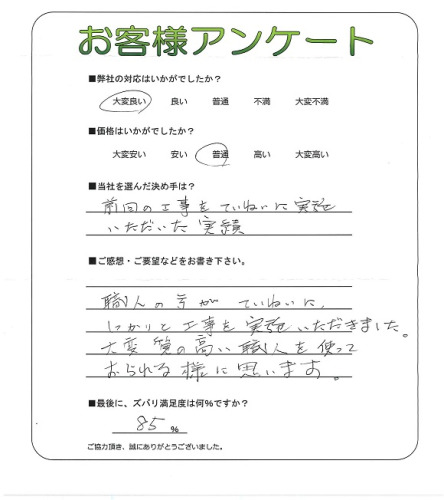 お客様アンケート
■弊社の対応はいかがでしたか？
大変良い 良い 普通 不満 大変不満
■価格はいかがでしたか？
大変安い 安い 普通 高い 大変高い
■当社を選んだ決め手は？
前回の工事をていねいに実施
いただいた実績
■ご感想・ご要望などをお書き下さい。
職人の方が ていねいに、
しっかりと工事を実施いただきました。
大変質の高い職人を使って
おられる様に思います。
■最後に、ズバリ満足度は何％ですか？
85 ％
ご協力頂き、誠にありがとうございました。